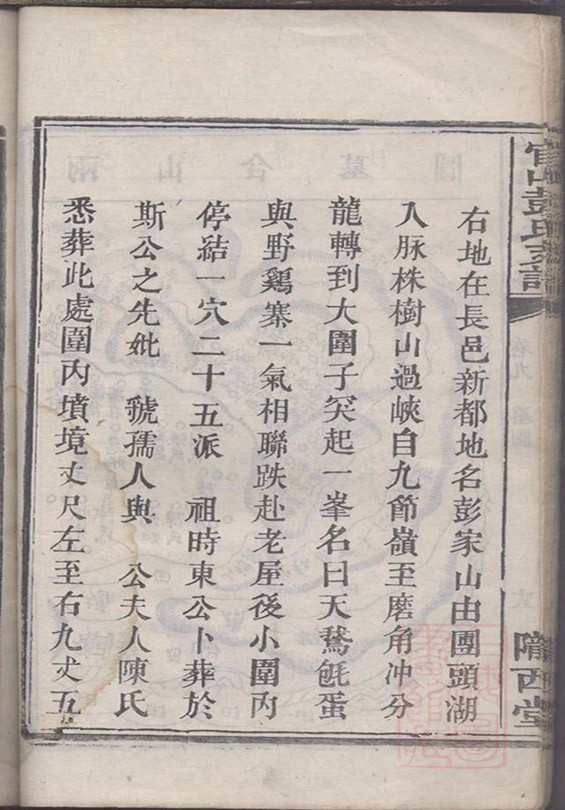 右地在長邑新都地名彭家山由團頭湖
入脉株樹山過峽自九節嶺至磨角冲分
龍轉到大圍子突起一峯名曰天鵞毻蛋
與野鷄寨一氣相聯跌赴老屋後小圍內
停結一穴二十五派 祖時東公卜葬於
斯公之先妣 虢孺人與 公夫人陳氏
悉葬此處圍內墳境丈尺左至右九丈五
隴西堂